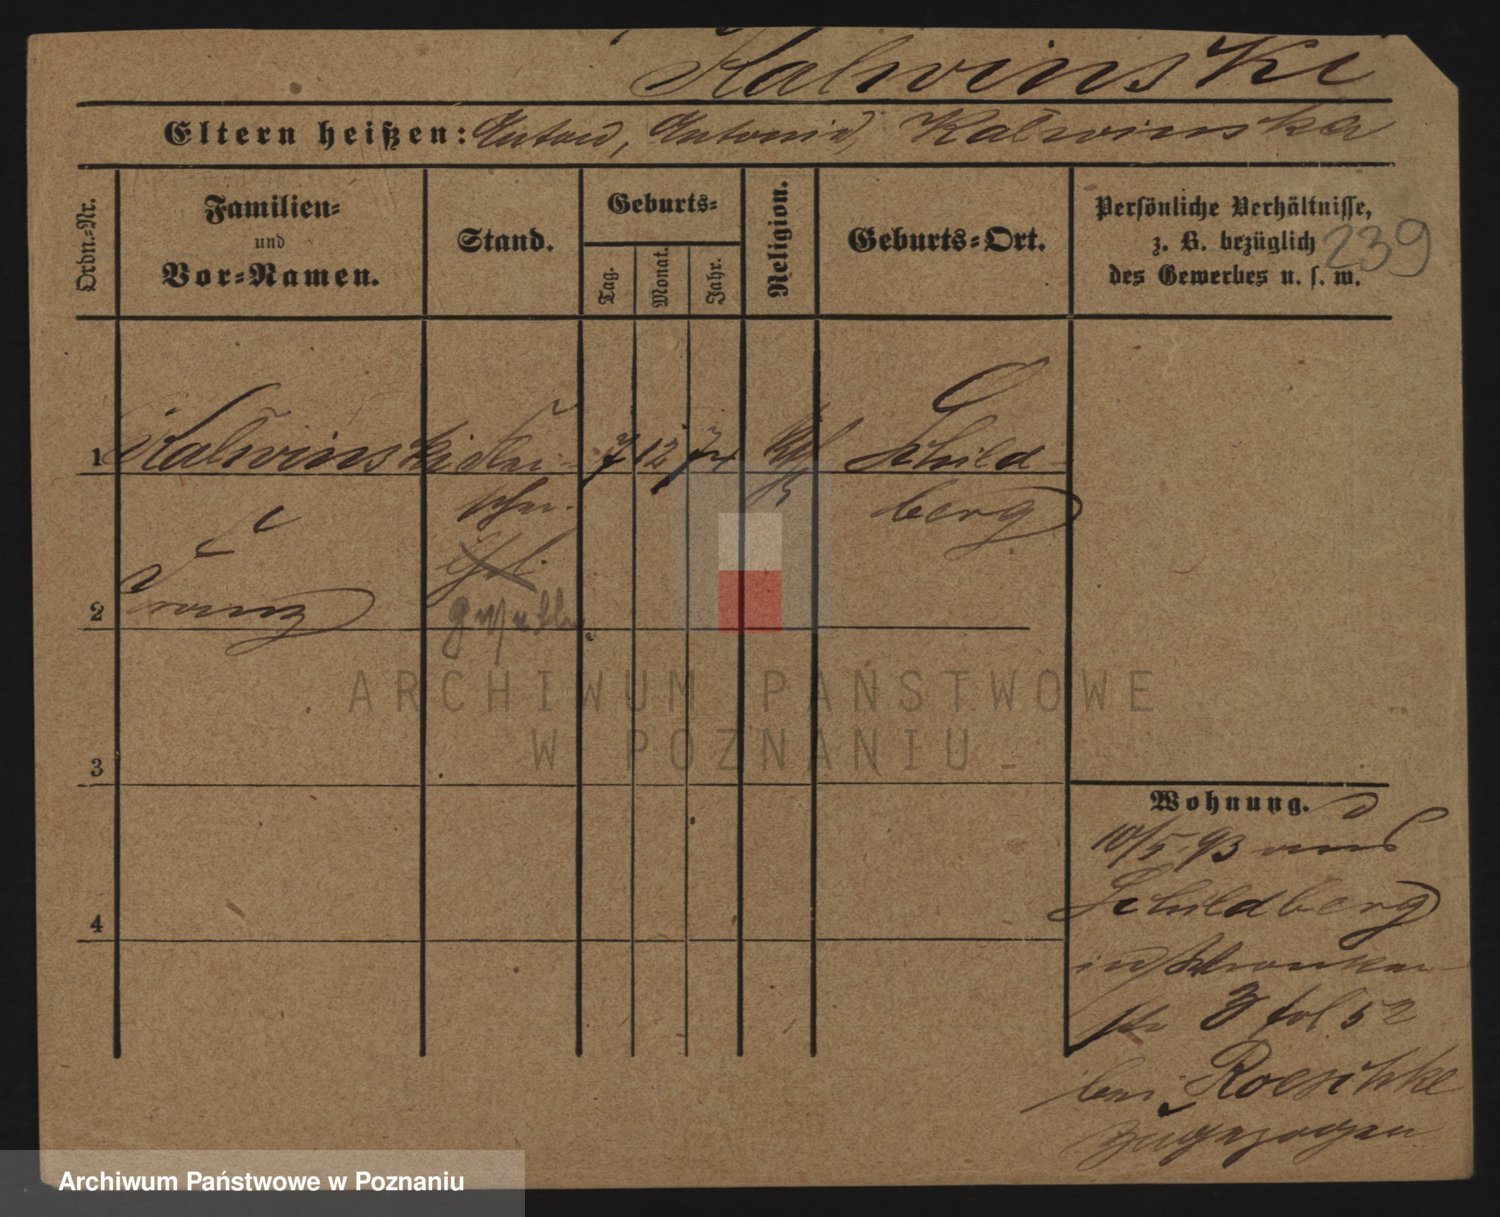 Kalwinski
Eltern heißen: Anton, Antonia, Kalwinska
Ordn.-Nr.
Familien-
und
Vor-Namen.
Stand.
Geburts-
Tag.
Monat.
Jahr.
Religion.
Geburts-Ort.
Persönliche Verhältnisse,
z. B. bezüglich
des Gewerbes u. s. w.
239
1 Kalwinski 7 12 74 Kth Schild-
berg
2 Franz
3
4
Wohnung.
10/5. 93 aus
Schildberg
in Wronker
str 3 fol 52
bei Roeschke
zugezogen
ARCHIWUM PAŃSTWOWE
W POZNANIU
Archiwum Państwowe w Poznaniu